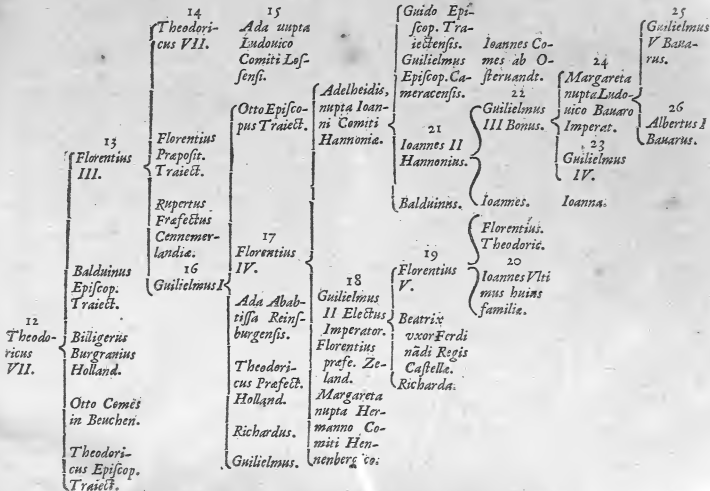 12
Theodo-
ricus
VII.
13
Florentius
III.
Balduinus
Episcop.
Traiect.
Biligerus
Burgranius
Holland.
Otto Comes
in Beuchen.
Theodori-
cus Episcop.
Traiect.
14
Theodori-
cus VII.
Florentius
Præposit.
Traiect.
Rupertus
Præfectus
Cennemer-
landiæ.
16
Guilielmus I
15
Ada uupta
Ludouico
Comiti Los-
sensi.
Otto Episco-
pus Traiect.
17
Florentius
IV.
Ada Abab-
tissa Reins-
burgensis.
Theodori-
cus Præfect.
Holland.
Richardus.
Guilielmus.
Adelheidis,
nupta Ioan-
ni Comiti
Hannoniæ.
18
Guilielmus
II Electus
Imperator.
Florentius
præfe. Ze-
land.
Margareta
nupta Her-
manno Co-
miti Hen-
nenberg co:
Guido Epi-
scop. Tra-
iectensis.
Guilielmus
Episcop. Ca-
meracensis.
21
Ioannes II
Hannonius.
Balduinus.
19
Florentius
V.
Beatrix
vxor Ferdi
nãdi Regis
Castellæ.
Richarda.
Ioannes Co-
mes ab O-
steruandt.
22
Guilielmus
III Bonus.
Ioannes.
Florentius.
Theodoric.
20
Ioannes Vlti
mus huius
familiæ.
24
Margareta
nupta Ludo-
uico Bauaro
Imperat.
23
Guilielmus
IV.
Ioanna.
25
Guilielmus
V Baua-
rus.
26
Albertus I
Bauarus.